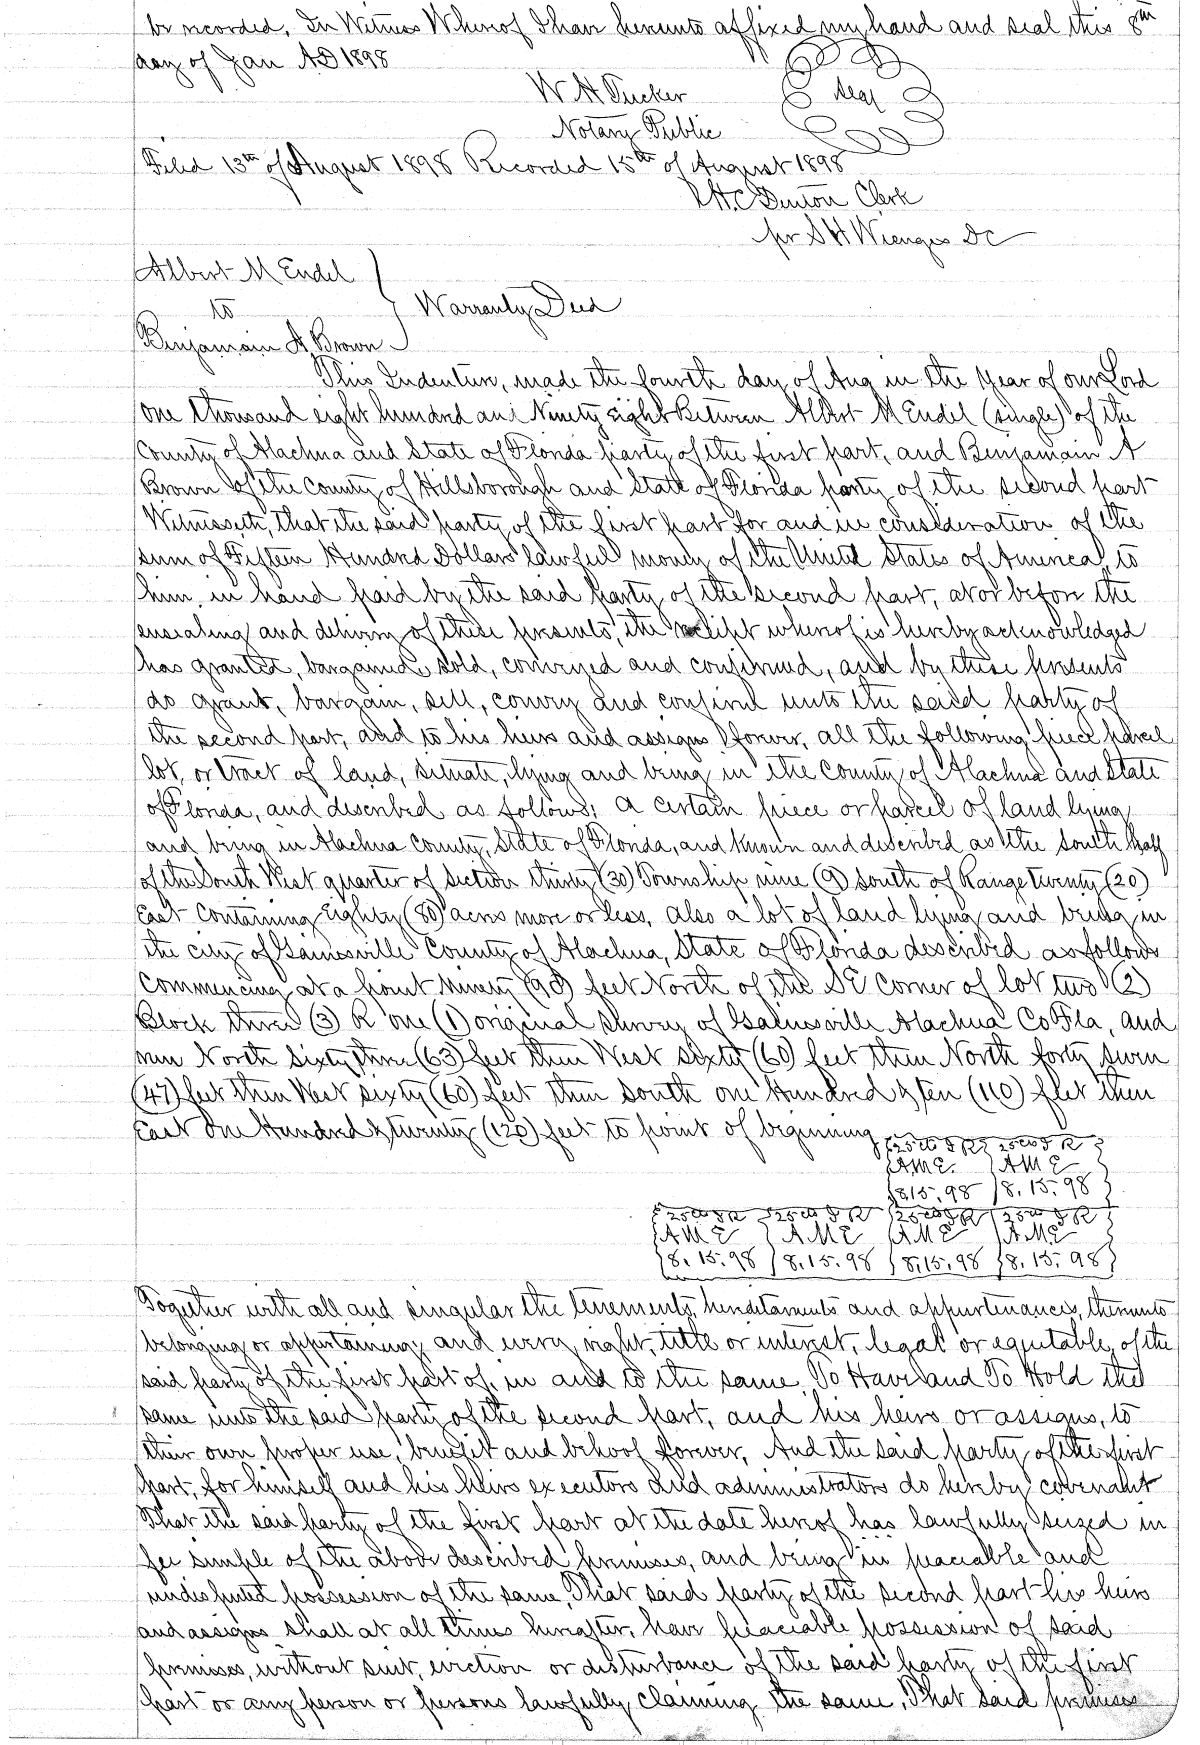 be recorded. In Witness Whereof I have hereunto affixed my hand and seal this 8th
day of Jan AD 1898
W H Tucker
Seal
Notary Public
Filed 13th of August 1898 Recorded 15th of August 1898
H.C. Denton Clerk
pr S H Wienges DC
Albert M Endel
to
Warranty Deed
Benjamain A Brown
This Indenture, made the fourth day of Aug in the Year of our Lord
One thousand eight hundred and Ninety Eight Between Albert M Endel (single) of the
County of Alachua and State of Florida party of the first part, and Benjamain A
Brown of the County of Hillsborough and State of Florida party of the second part
Witnesseth, that the said party of the first part for and in consideration of the
sum of Fifteen Hundred Dollars lawful money of the United States of America, to
him in hand paid by the said party of the second part, at or before the
ensealing and delivery of these presents, the receipt whereof is hereby acknowledged
has granted, bargained, sold, conveyed and confirmed, and by these presents
do grant, bargain, sell, convey and confirm unto the said party of
the second part, and to his heirs and assigns forever, all the following piece parcel
lot, or tract of land, situate, lying and being in the County of Alachua and State
of Florida, and described as follows: A certain piece or parcel of land lying
and being in Alachua County, State of Florida, and known and described as the South half
of the South West quarter of Section thirty (30) Township nine (9) South of Range twenty (20)
East Containing Eighty (80) acres more or less, Also a lot of land lying and being in
the city of Gainesville County of Alachua, State of Florida described as follows
Commencing at a point Ninety (90) feet North of the SE Corner of lot two (2)
Block three (3) R one (1) original survey of Gainesville Alachua Co Fla, and
run North Sixty three (63) feet then West sixty (60) feet then North forty seven
(47) feet then West sixty (60) feet then South one Hundred & ten (110) feet then
East One Hundred & twenty (120) feet to point of beginning
25cts I R 25cts I R
A.M.E. A M E
8.15.98 8.15.98
25cts I R 25cts I R 25cts I R 25cts I R
A M E A M E A M E A.M.E
8.15.98 8.15.98 8.15.98 8.15.98
Together with all and singular the tenements, hereditaments and appurtenances, thereunto
belonging or appertaining; and every right, title or interest, legal or equitable, of the
said party of the first part of, in and to the same. To Have and To Hold the
same unto the said party of the second part, and his heirs or assigns, to
their own proper use, benefit and behoof forever. And the said party of the first
part, for himself and his heirs executors and administrators do hereby covenant
That the said party of the first part at the date hereof has lawfully seized in
fee simple of the above described premises, and being in peaceable and
undisputed possession of the same, That said party of the second part his heirs
and assigns shall at all times hereafter, have peaceable possession of said
premises, without suit, eviction or disturbance of the said party of the first
part or any person or persons lawfully claiming the same, That said premises